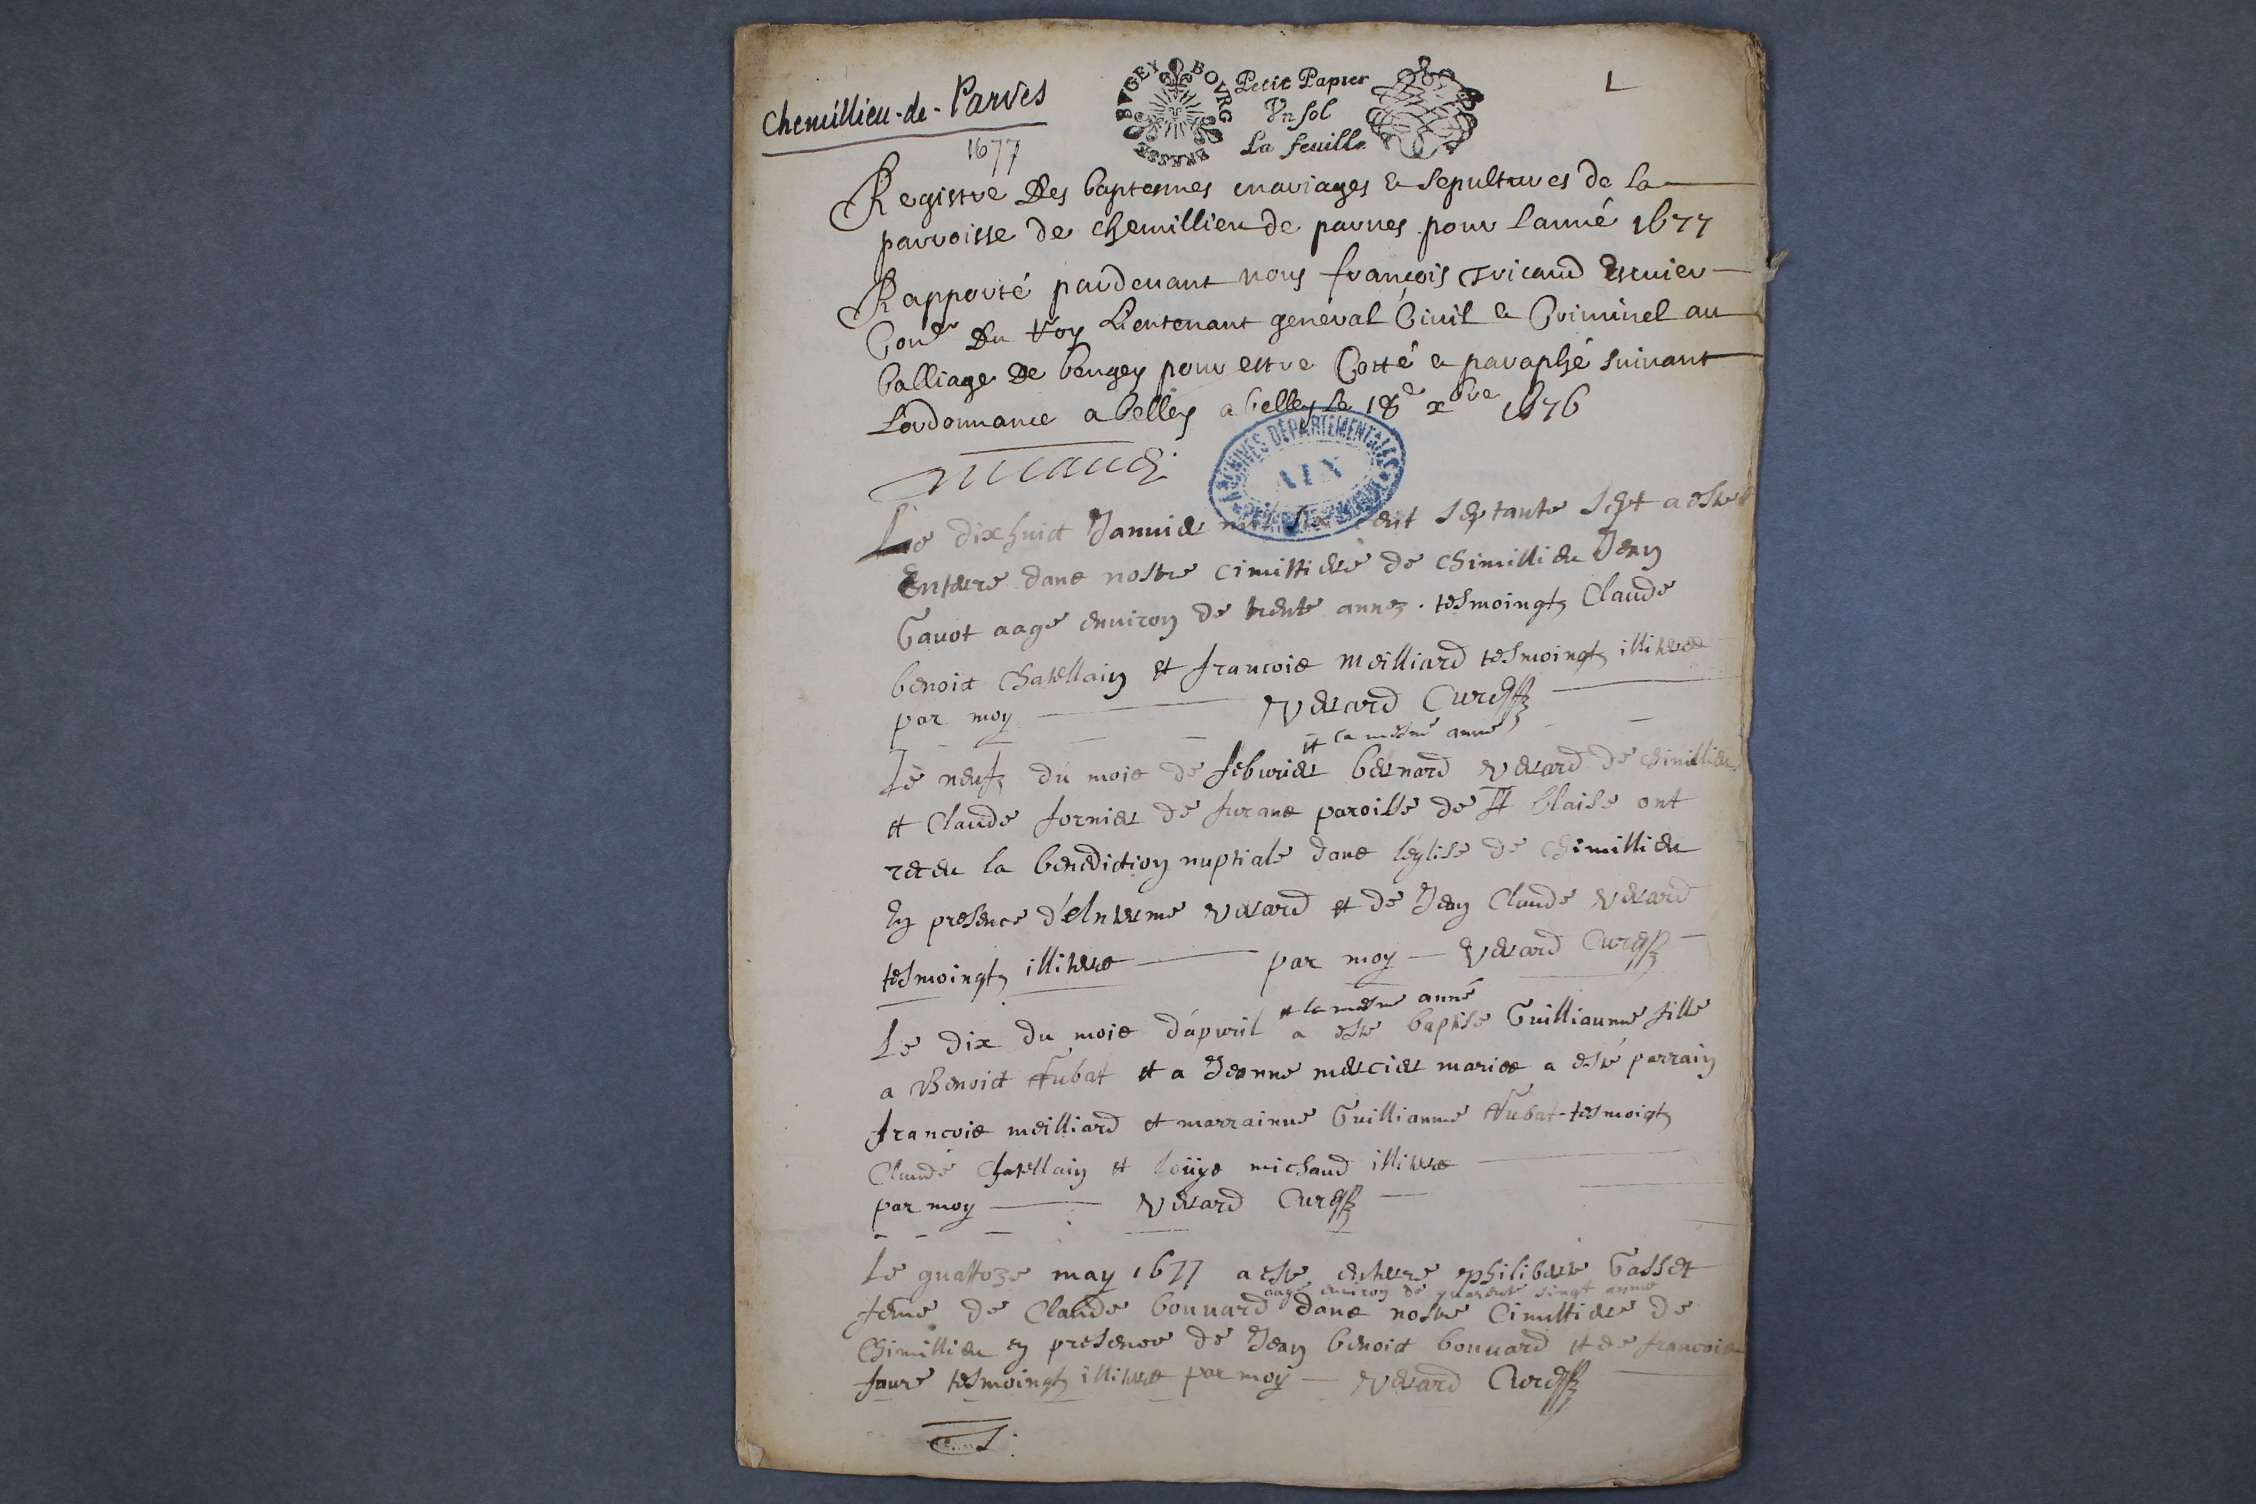 chemillieu-de-Parves
1677
BVGEY BOVRG BRESSE
Petit Papier
Vn sol
La feuille
1
Registre Des baptesmes mariages & sepultures de la
parroisse de chemillieu de parues pour lanné 1677
Rapporté pardeuant nous françois Tricaud Escuier
Conr Du Roy Lieutenant general Ciuil & Criminel au
balliage De beugey pour estre Cotté & paraphé suiuant
Lordonnance a belley a belley le 18e xbre 1676
Tricaud
ARCHIVES DÉPARTEMENTALES
AIN
Le dixhuict Januier mil six cent septante sept a esté
Enterre dans nostre cimittiere de chimillieu Jean
Gauot aage enuiron de trente annes. tesmoingts Claude
benoict Chatellain et francois meilliard tesmoingts illiteres
par moy Verard Cure
et la mesme anne
Le neufz du mois de feburier bernard verard de chimillieu
et Claude fornier de furans paroisse de St blaise ont
receu la benediction nuptiale dans l'eglise de chimillieu
En presence d'Antherme verard et de Jean Claude verard
tesmoingts illiteres par moy Verard Cure
et la mesme anné
Le dix du mois d'apuril a este baptise Guilliaume fille
a Benoict fubat et a Jeanne mercier maries a esté parrain
francois meilliard et marrainne Guillianme fubat tesmoigts
Claude Chatellain et loüye michaud illiteres
par moy Verard Cure
Le quattoze may 1677 a este enterre philiberte Gasset
aage enuiron de quarente singt anne
feme de Claude bonnard dans nostre Cimittiere de
Chimillieu en presence de Jean benoict bonnard et de francois
faure tesmoingts illiteres par moy Verard Cure